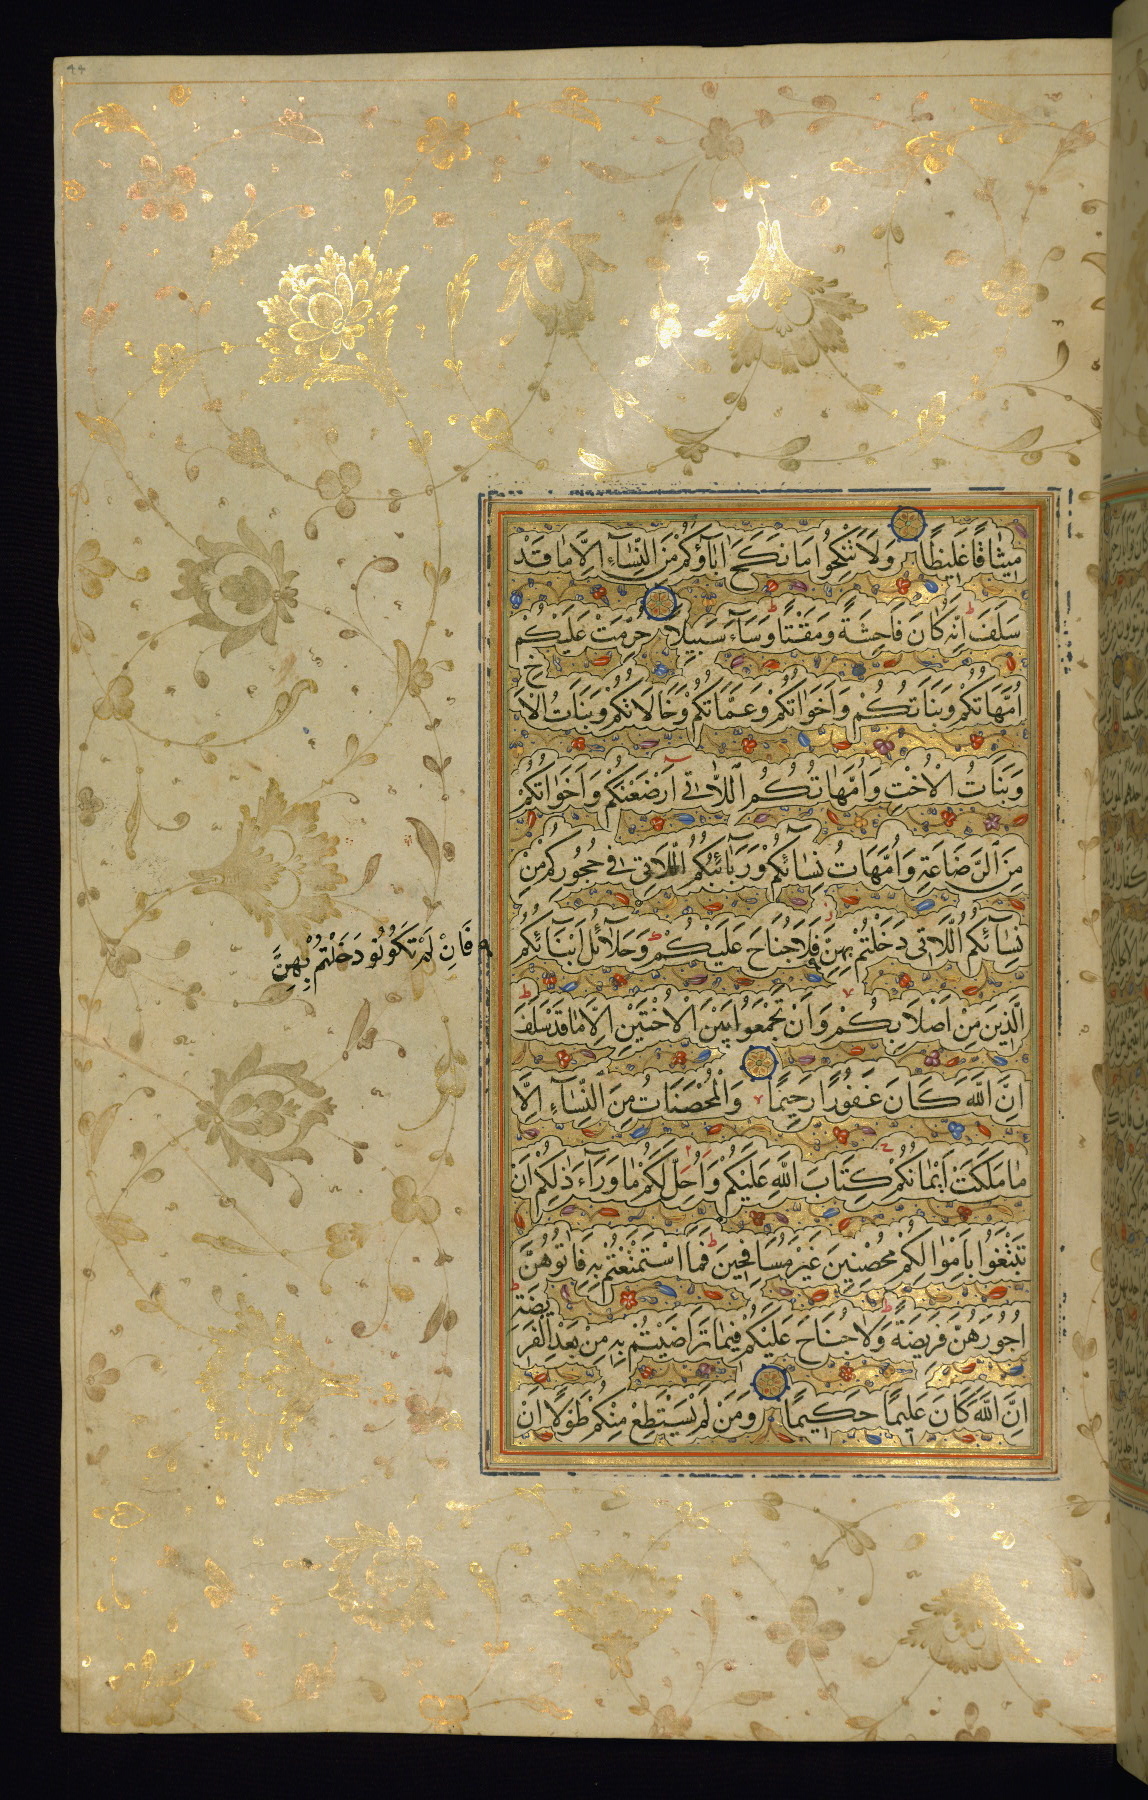 مِيثَاقًا غَلِيظًا وَلَا تَنْكِحُوا مَا نَكَحَ اٰبَاؤُكُمْ مِنَ النِّسَآءِ اِلَّا مَا قَدْ
سَلَفَ اِنَّهُ كَانَ فَاحِشَةً وَمَقْتًا وَسَآءَ سَبِيلًا حُرِّمَتْ عَلَيْكُمْ
اُمَّهَاتُكُمْ وَبَنَاتُكُمْ وَاَخَوَاتُكُمْ وَعَمَّاتُكُمْ وَخَالَاتُكُمْ وَبَنَاتُ الْاَخِ
وَبَنَاتُ الْاُخْتِ وَاُمَّهَاتُكُمُ اللَّاتِى اَرْضَعْنَكُمْ وَاَخَوَاتُكُمْ
مِنَ الرَّضَاعَةِ وَاُمَّهَاتُ نِسَآئِكُمْ وَرَبَآئِبُكُمُ اللَّاتِى فِى حُجُورِكُمْ مِنْ
نِسَآئِكُمُ اللَّاتِى دَخَلْتُمْ بِهِنَّ فَلَا جُنَاحَ عَلَيْكُمْ وَحَلَآئِلُ اَبْنَآئِكُمُ
فَاِنْ لَمْ تَكُونُو دَخَلْتُمْ بِهِنَّ
الَّذِينَ مِنْ اَصْلَابِكُمْ وَاَنْ تَجْمَعُوا بَيْنَ الْاُخْتَيْنِ اِلَّا مَا قَدْ سَلَفَ
اِنَّ اللَّهَ كَانَ غَفُورًا رَحِيمًا وَالْمُحْصَنَاتُ مِنَ النِّسَآءِ اِلَّا
مَا مَلَكَتْ اَيْمَانُكُمْ كِتَابَ اللَّهِ عَلَيْكُمْ وَاُحِلَّ لَكُمْ مَا وَرَآءَ ذٰلِكُمْ اَنْ
تَبْتَغُوا بِاَمْوَالِكُمْ مُحْصِنِينَ غَيْرَ مُسَافِحِينَ فَمَا اسْتَمْتَعْتُمْ بِهِ فَاٰتُوهُنَّ
اُجُورَهُنَّ فَرِيضَةً وَلَا جُنَاحَ عَلَيْكُمْ فِيمَا تَرَاضَيْتُمْ بِهِ مِنْ بَعْدِ الْفَرِيضَةِ
اِنَّ اللَّهَ كَانَ عَلِيمًا حَكِيمًا وَمَنْ لَمْ يَسْتَطِعْ مِنْكُمْ طَوْلًا اَنْ